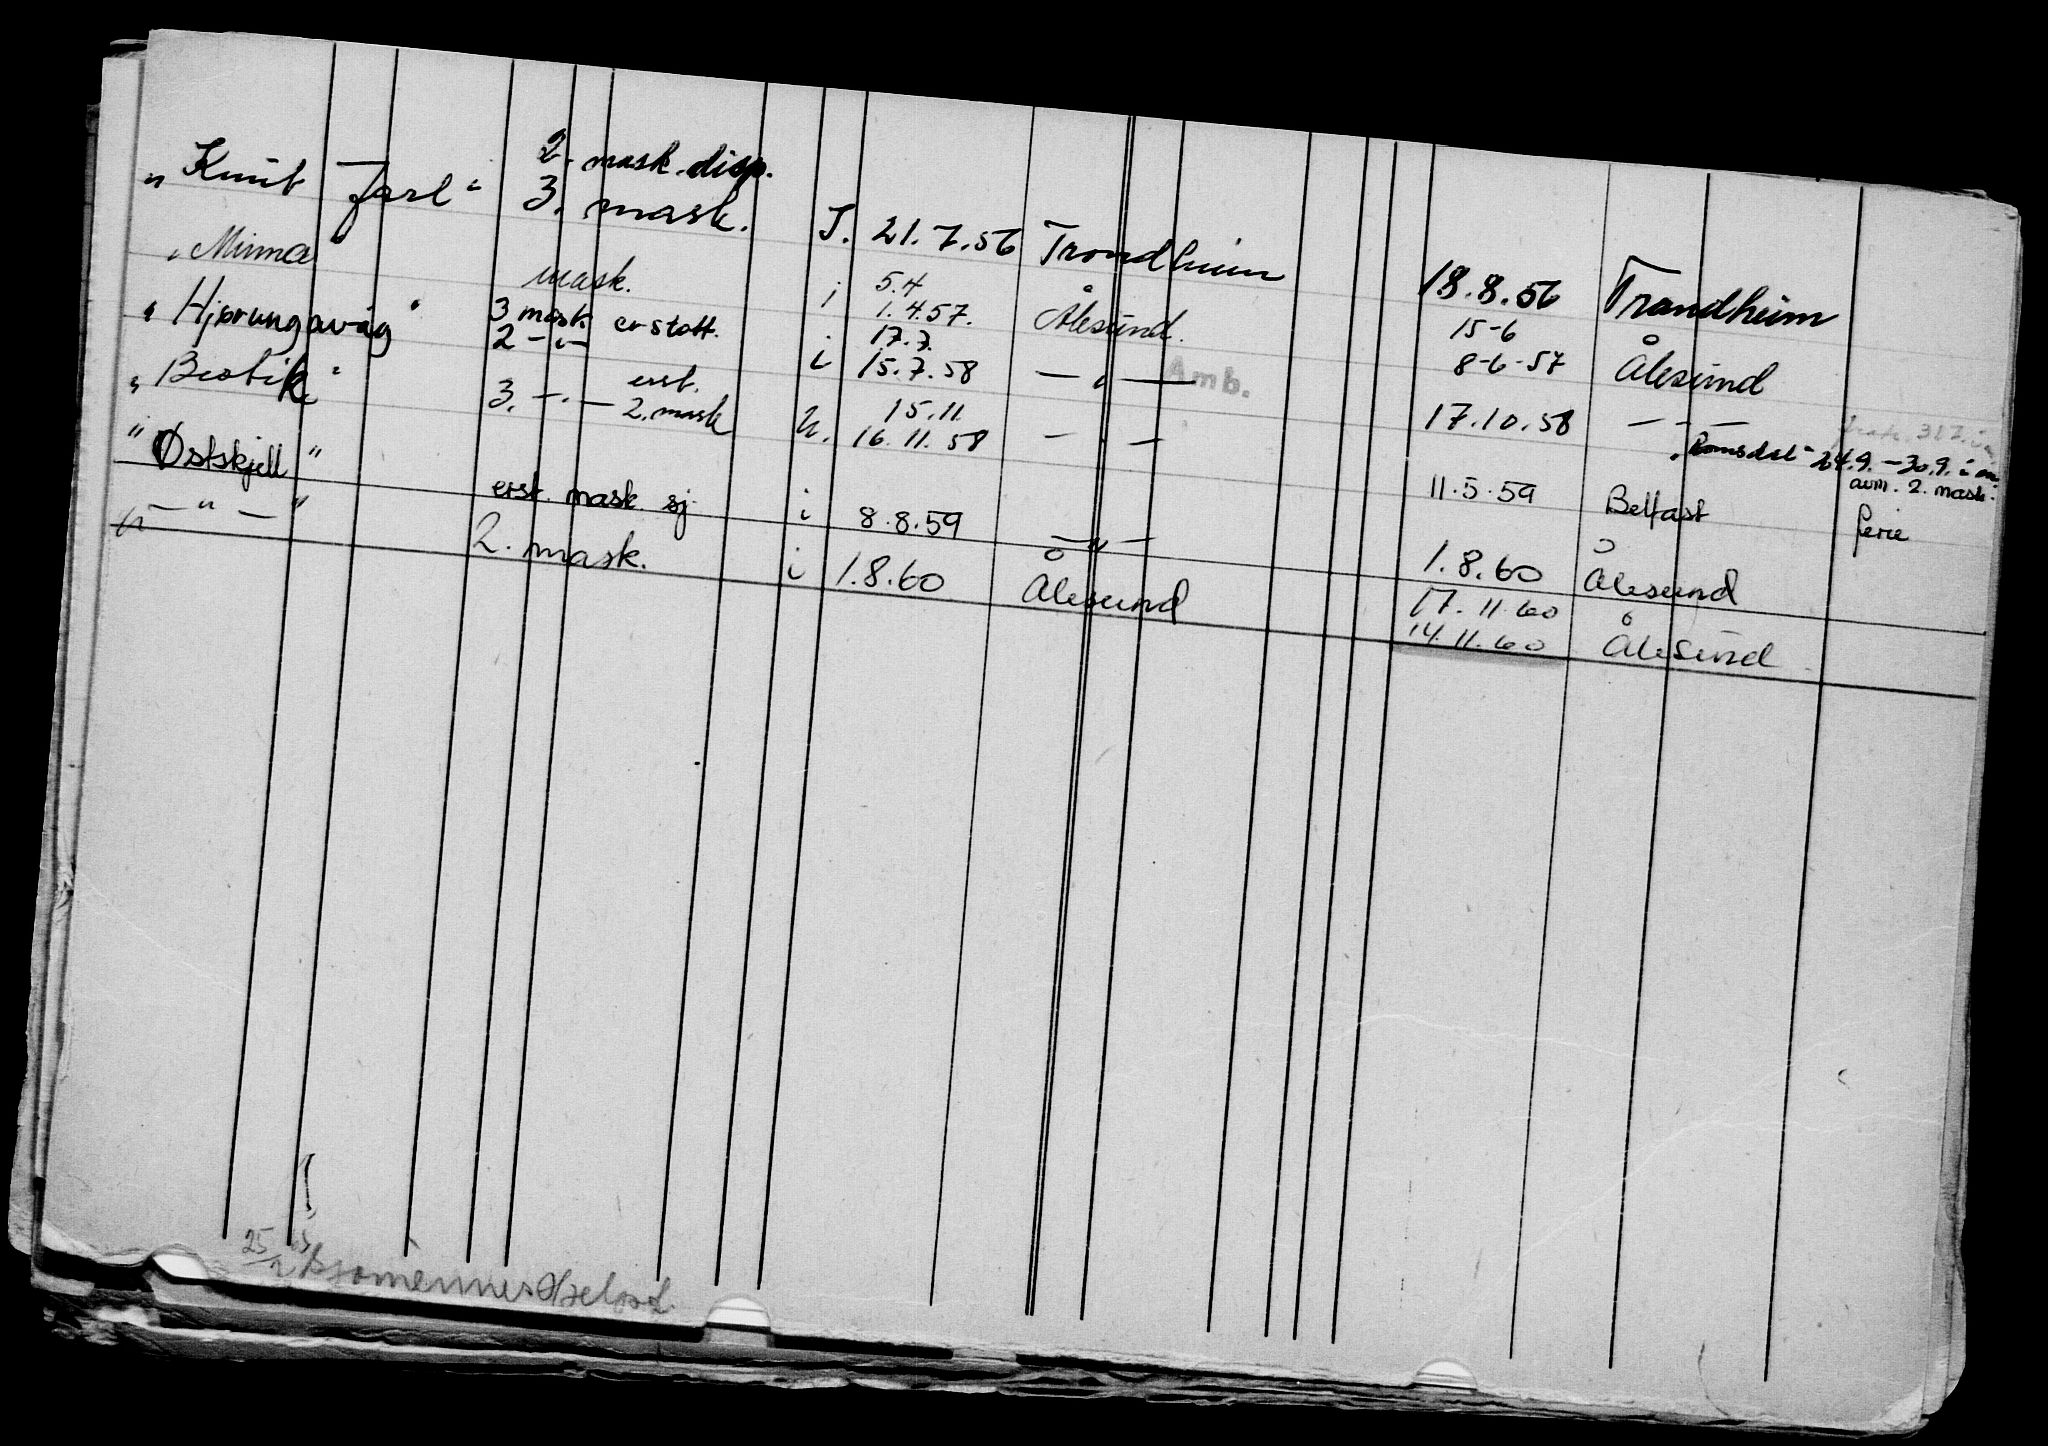 2. mask. disp.
"Knut Jarl" 3. mask. I. 21.7.56 Trondheim 18.8.56 Trondheim
"Minna" mask. i 5.4 15-6
1.4.57. Ålesund. 8-6-57 Ålesund
"Hjørungavåg" 3 mask erstatt.
2 -"- i 17.7.
15.7.58 — " — 17.10.58 — " —
Amb.
"Romsdal" 24.9. - 30.9. i
avm. 2. mask.
"Bestik" 3. -"- erst. 2. mask u. 15.11.
16.11.58 — " — 11.5.59 Belfast ferie
"Østskjell" erst. mask. sj. i 8.8.59 — " — 1.8.60 Ålesund
— " — 2. mask. i 1.8.60 Ålesund 17.11.60
14.11.60 Ålesund
25/2